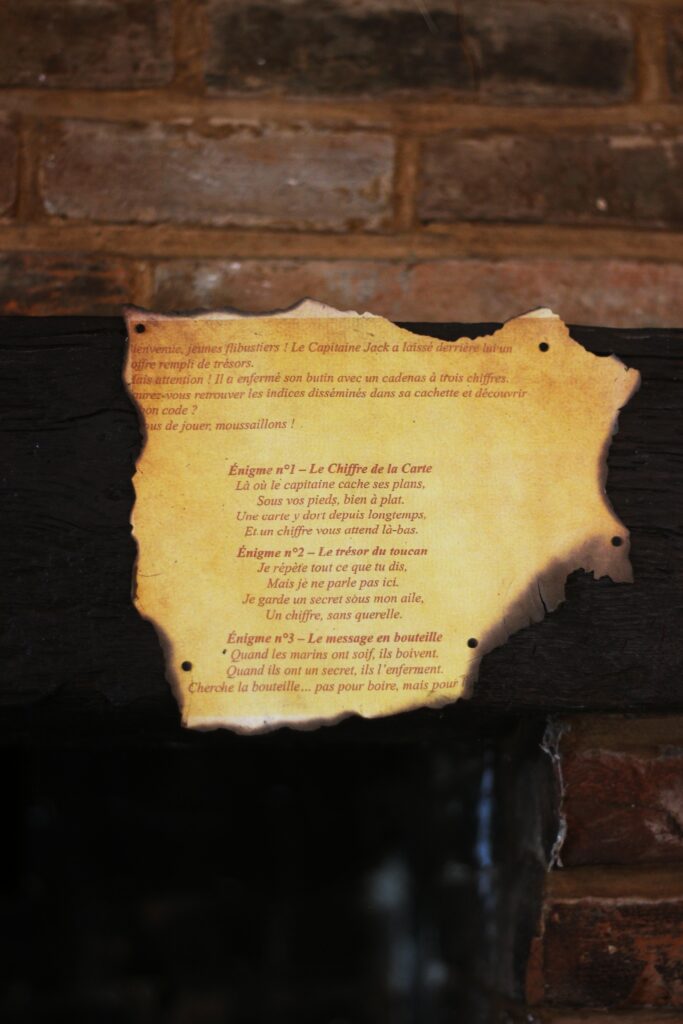 ienvenue, jeunes flibustiers ! Le Capitaine Jack a laissé derrière lui un
offre rempli de trésors.
Mais attention ! Il a enfermé son butin avec un cadenas à trois chiffres.
urez-vous retrouver les indices disséminés dans sa cachette et découvrir
bon code ?
ous de jouer, moussaillons !
Énigme n°1 – Le Chiffre de la Carte
Là où le capitaine cache ses plans,
Sous vos pieds, bien à plat.
Une carte y dort depuis longtemps,
Et un chiffre vous attend là-bas.
Énigme n°2 – Le trésor du toucan
Je répète tout ce que tu dis,
Mais je ne parle pas ici.
Je garde un secret sous mon aile,
Un chiffre, sans querelle.
Énigme n°3 – Le message en bouteille
Quand les marins ont soif, ils boivent.
Quand ils ont un secret, ils l'enferment.
Cherche la bouteille… pas pour boire, mais pour